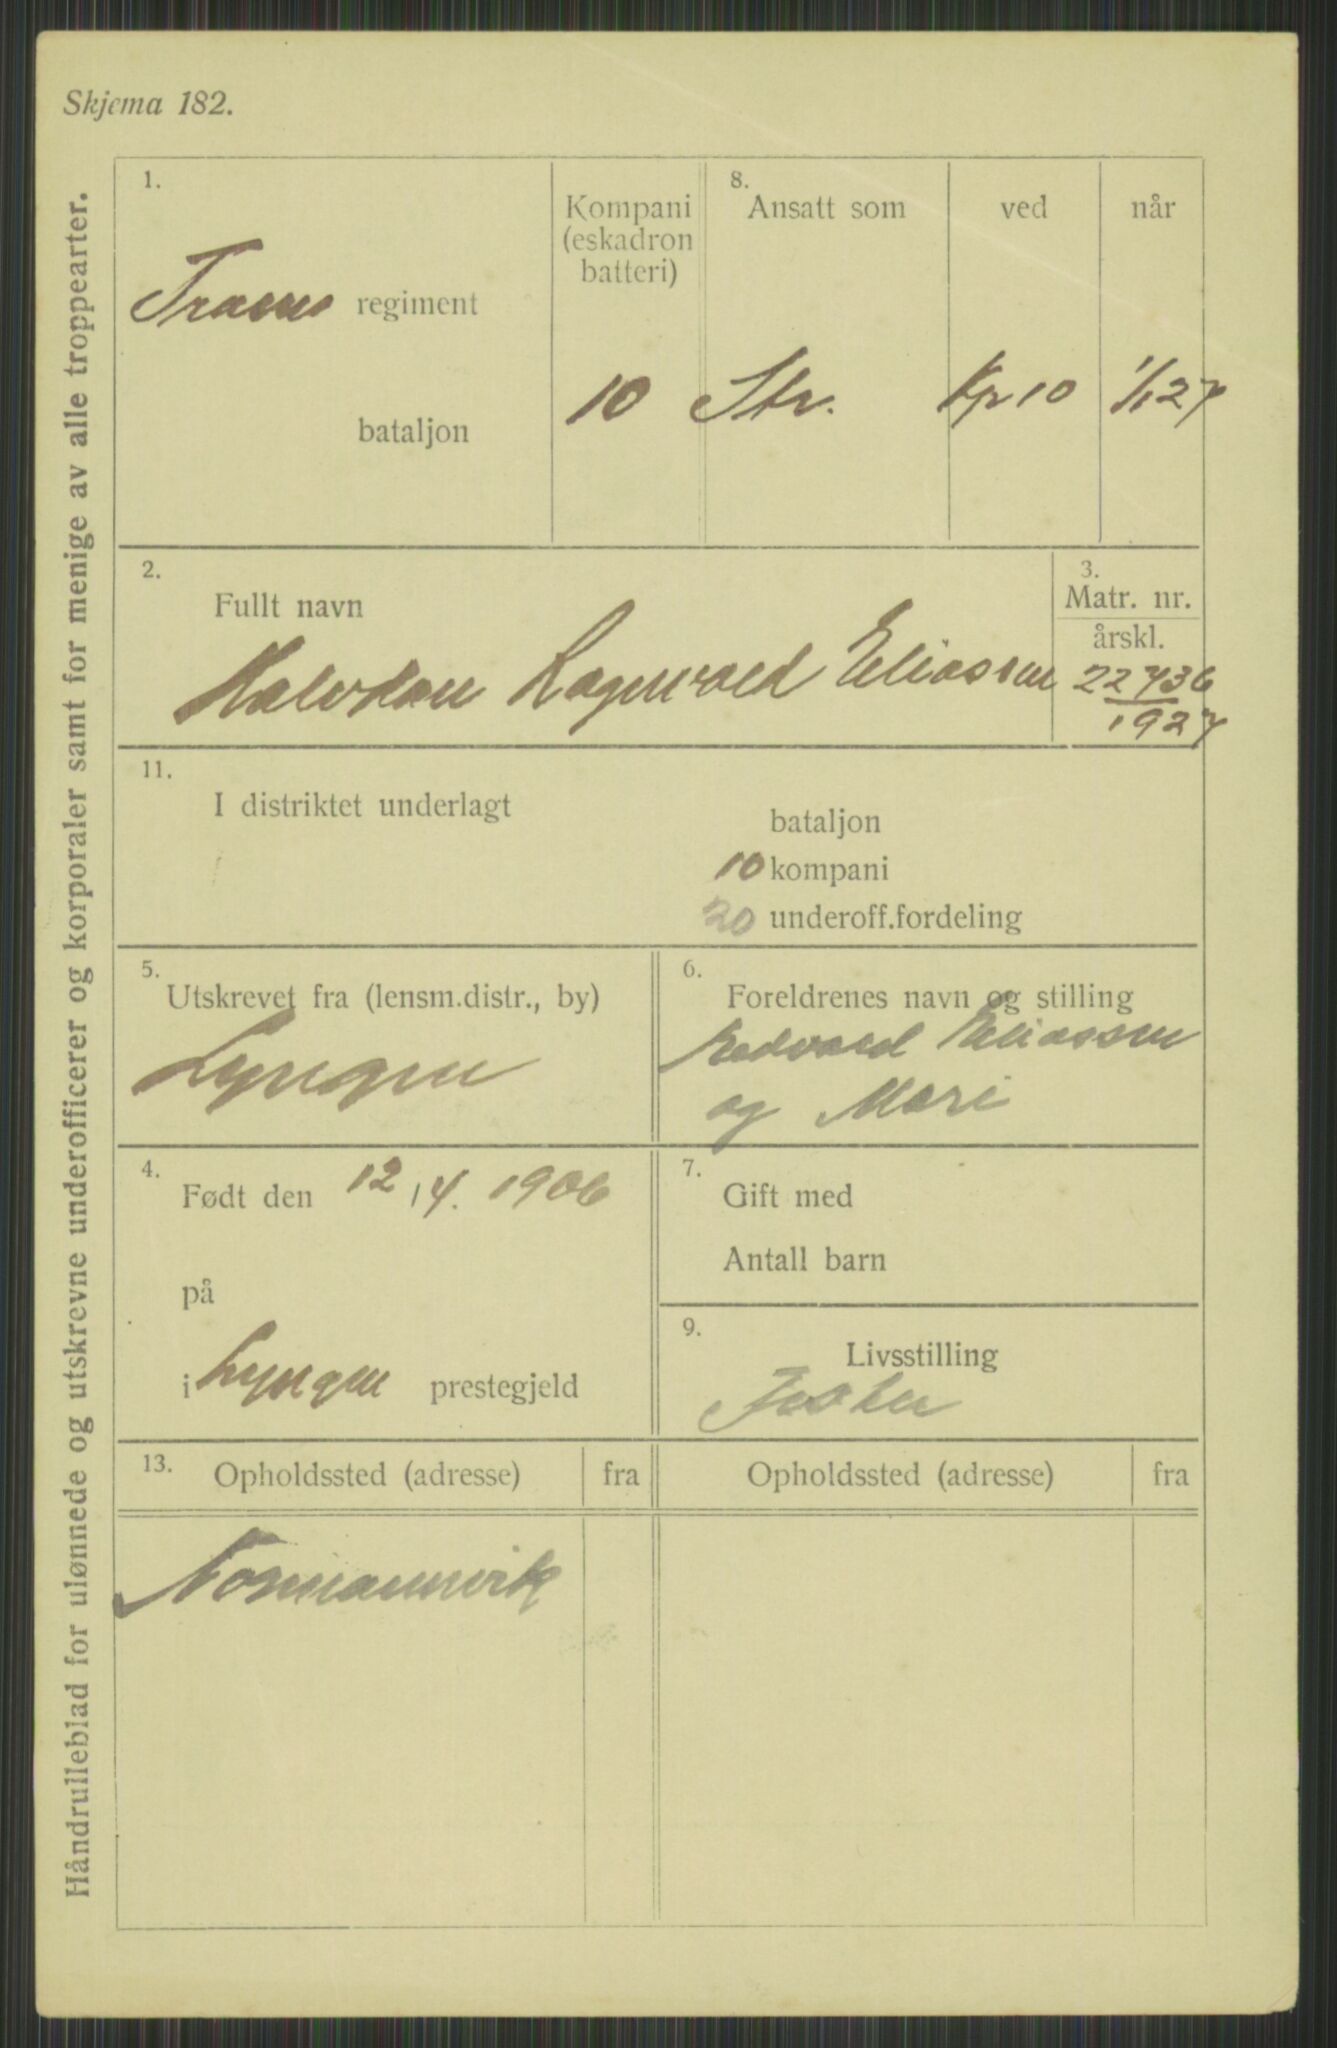 Skjema 182.
Håndrulleblad for ulønnede og utskrevne underofficerer og korporaler samt for menige av alle troppearter.
1.
Troms regiment
bataljon
Kompani
(eskadron
batteri)
10
8.
Ansatt som ved når
Str. Kp 10 1/1 27
2.
Fullt navn
Halvdan Ragnvald Eliassen
3.
Matr. nr.
årskl.
22736
1927
11.
I distriktet underlagt
bataljon
10 kompani
20 underoff.fordeling
5.
Utskrevet fra (lensm.distr., by)
Lyngen
6.
Foreldrenes navn og stilling
Edvard Eliassen
og Mari
4.
Født den 12/4. 1906
på
i Lyngen prestegjeld
7.
Gift med
Antall barn
9.
Livsstilling
Fisker
13.
Opholdssted (adresse) fra Opholdssted (adresse) fra
Normannvik